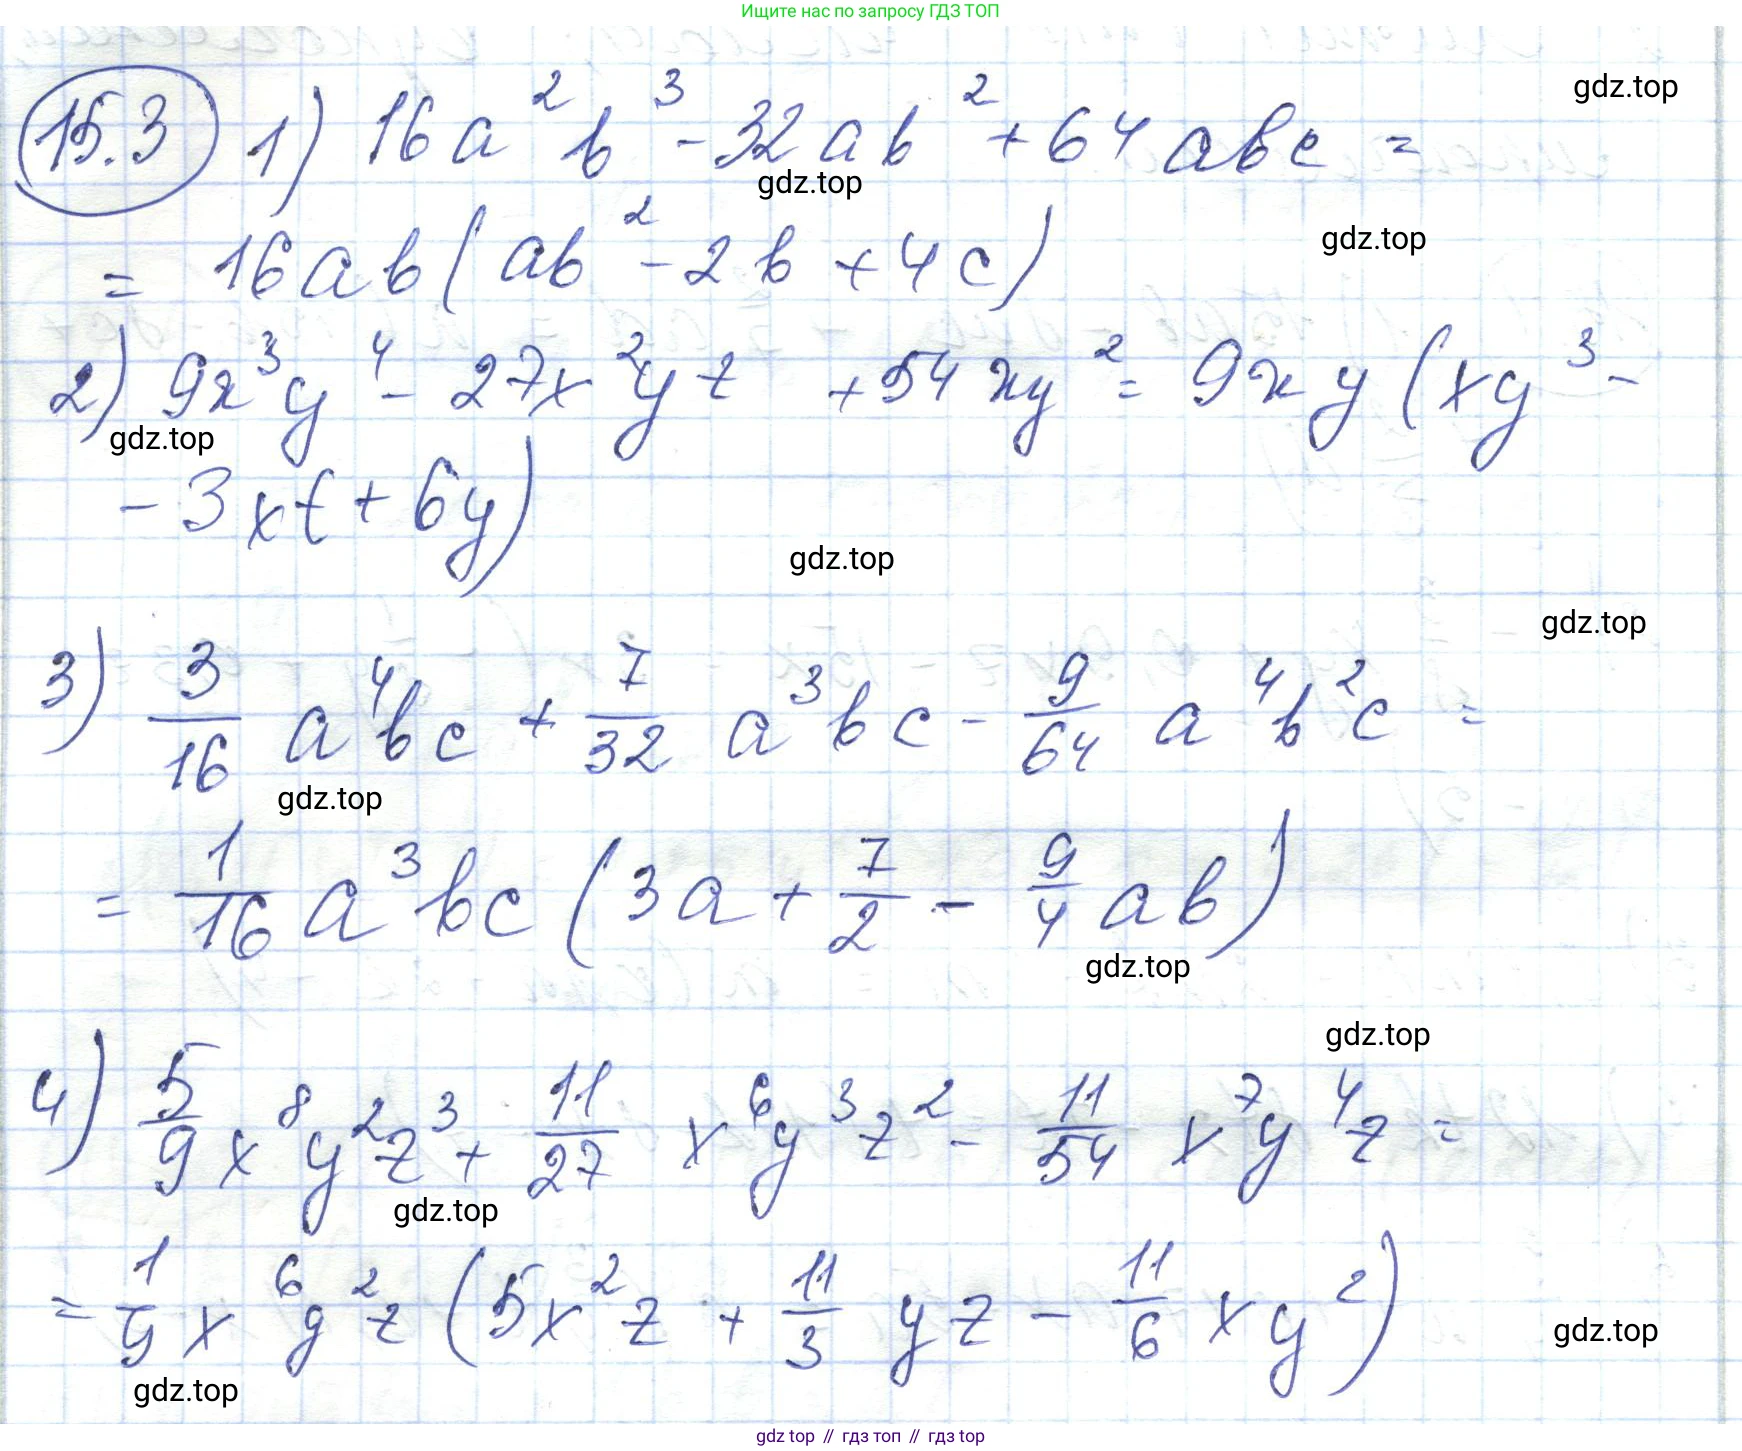 Ищите нас по запросу ГДЗ ТОП
15.3 1) 16a²b³ - 32ab² + 64abc =
gdz.top
gdz.top
= 16ab(ab² - 2b + 4c)
gdz.top
2) 9x³y⁴ - 27x²yz + 54xy² = 9xy(xy³ -
gdz.top
- 3xz + 6y)
gdz.top
gdz.top
3) 3/16 a⁴bc + 7/32 a³bc - 9/64 a⁴b²c =
gdz.top
= 1/16 a³bc (3a + 7/2 - 9/4 ab)
gdz.top
gdz.top
4) 5/9 x⁸y²z³ + 11/27 x⁶y³z² - 11/54 x⁷y⁴z =
gdz.top
= 1/9 x⁶y²z (5x²z + 11/3 yz - 11/6 xy²)
gdz.top
gdz.top
gdz top // гдз топ // gdz top